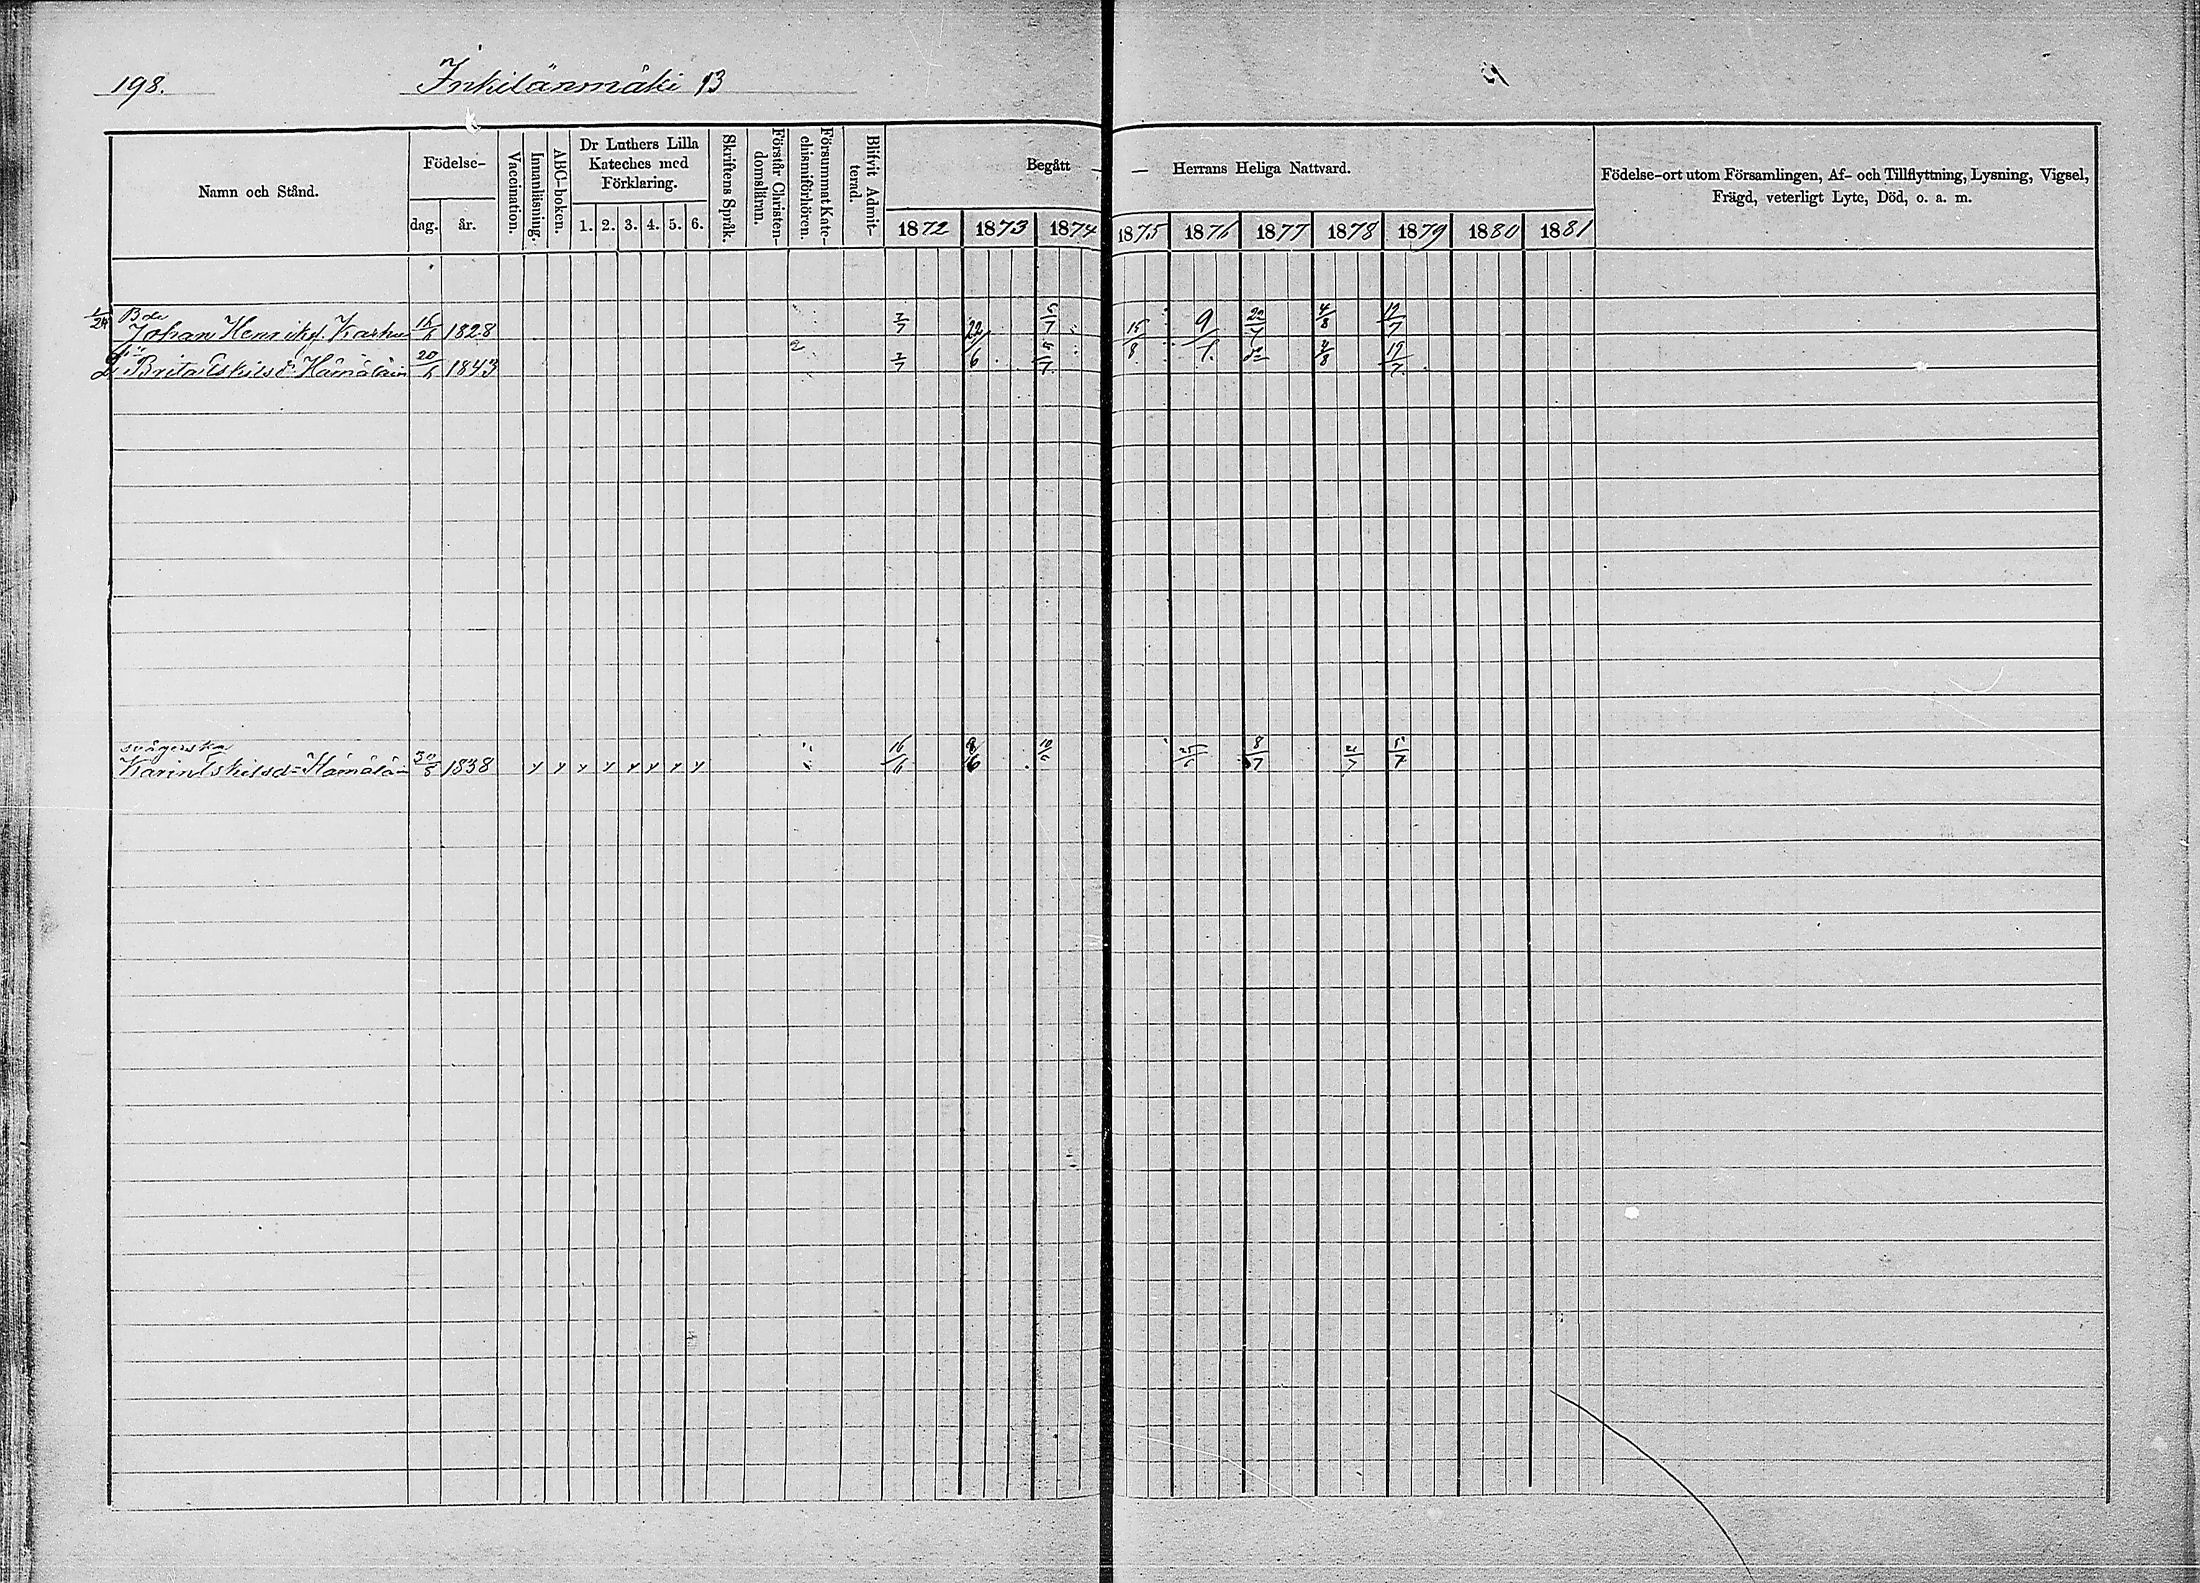 198. Inkilänmäki 13
Namn och Stånd.
Födelse-
dag. år.
Vaccination.
Innanläsning.
ABC-boken.
Dr Luthers Lilla
Kateches med
Förklaring.
1. 2. 3. 4. 5. 6.
Skriftens Språk.
Förstår Christen-
domsläran.
Försummat Kate-
chismiförhören.
Blifvit Admit-
terad.
Begått — — Herrans Heliga Nattvard.
1872 1873 1874 1875 1876 1877 1878 1879 1880 1881
Födelse-ort utom Församlingen, Af- och Tillflyttning, Lysning, Vigsel,
Frägd, veterligt Lyte, Död, o. a. m.
Bde
Johan Henriks. Karhu 1828 2/7 22/6 5/7 15/8 9/7 22/7 4/8 19/7
Brita Eskilsd. Hämäläin 20/6 1843 2/7 5/7 do 4/8 19/7
svägerska
Karin Eskilsd. Hämäläin 30/5 1838 y y y y y y y y 16/6 8/6 25/6 8/7 21/7 5/7